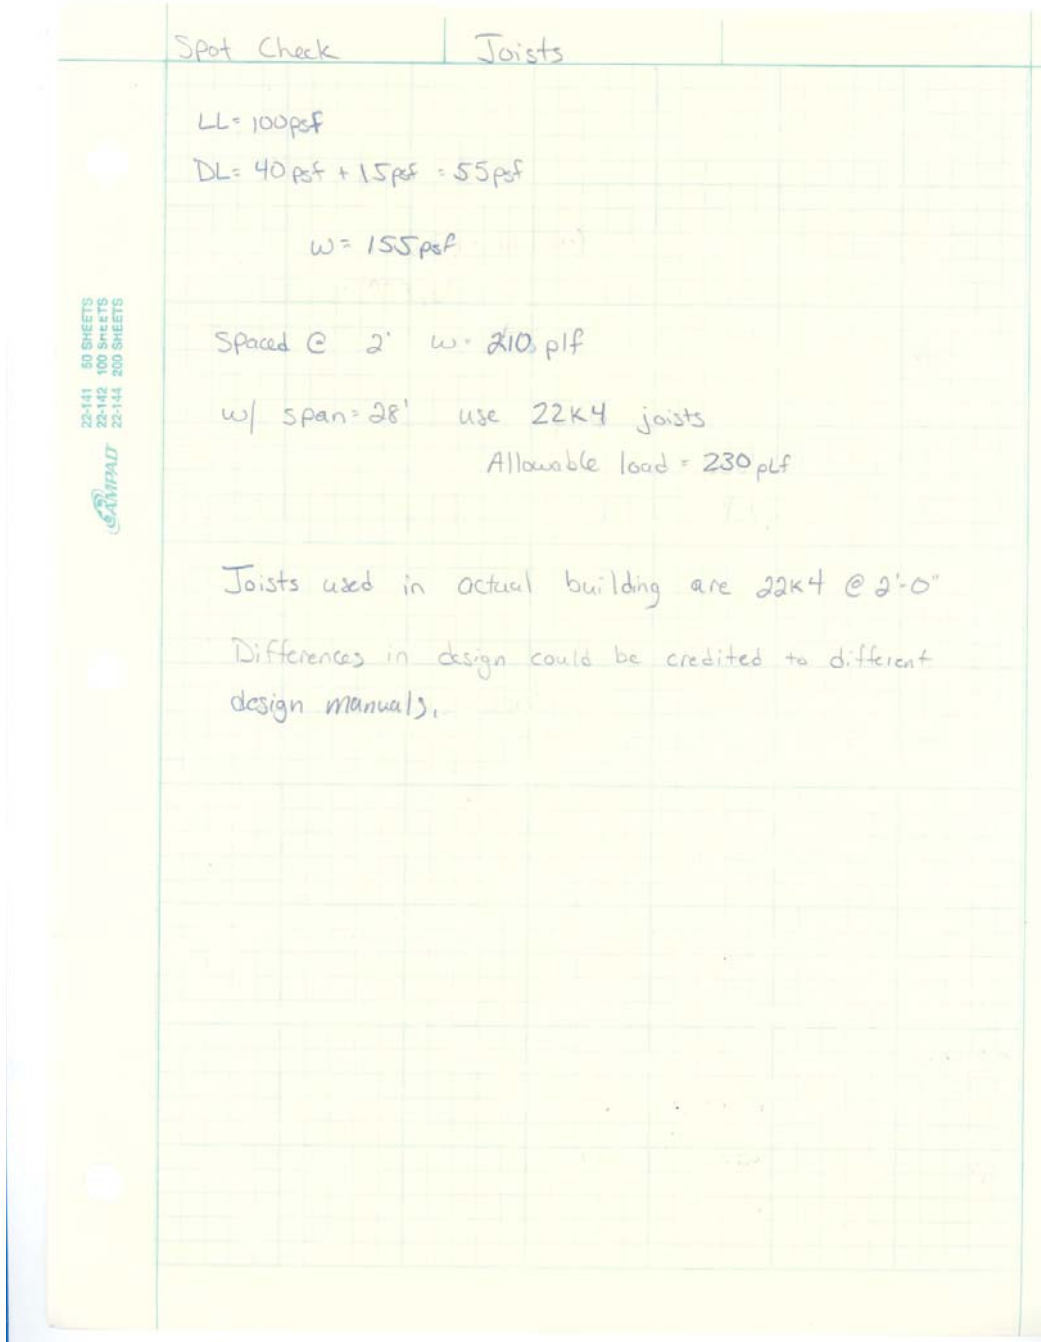 Spot Check Joists
LL= 100psf
DL= 40psf + 15psf = 55psf
w= 155psf
Spaced @ 2' w= 210 plf
w/ span=28' use 22K4 joists
Allowable load = 230 plf
Joists used in actual building are 22K4 @ 2'-0"
Differences in design could be credited to different
design manuals.
22-141 50 SHEETS
22-142 100 SHEETS
22-144 200 SHEETS
AMPAD